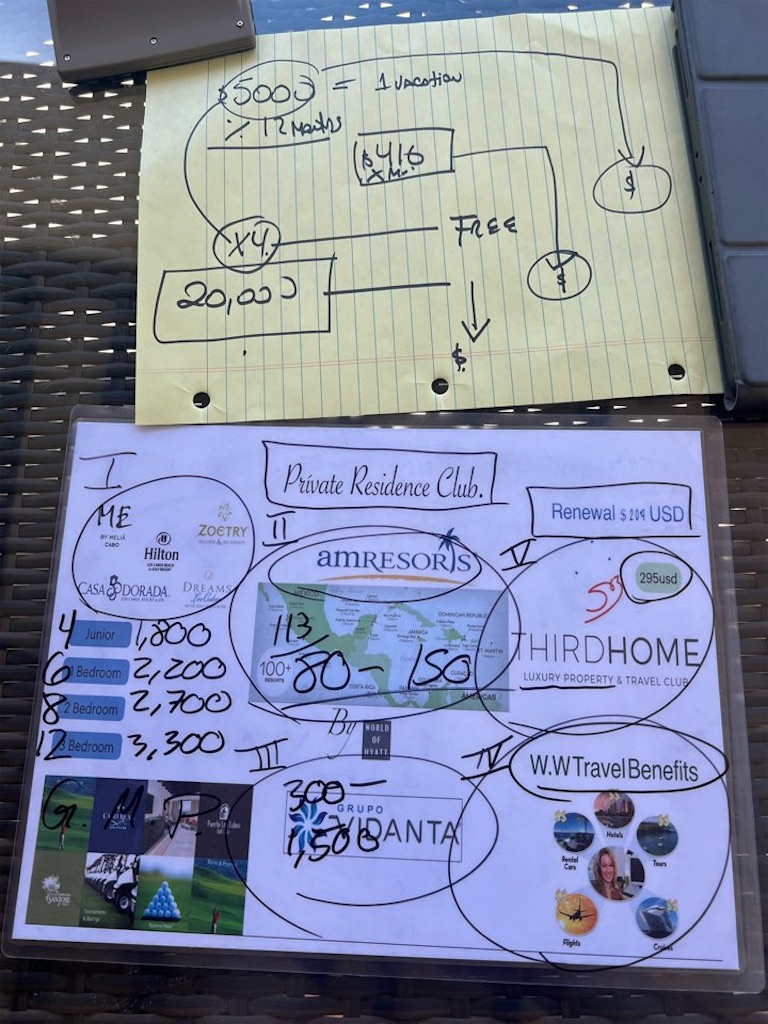 $5000 = 1 vacation
% 12 Months
$416
X M.
X4.
FREE
20,000
$
$
$.
I
Private Residence Club.
Renewal $209 USD
ME
BY MELIÁ
CABO
Hilton
LOS CABOS BEACH
& GOLF RESORT
ZOËTRY
WELLNESS & SPA RESORTS
CASA DORADA
LOS CABOS, RESORT & SPA
DREAMS
Los Cabos
II
amRESORTS
MEXICO
DOMINICAN REPUBLIC
JAMAICA
ST. MARTIN
CURACAO
COSTA RICA
AMERICAS
113,
100+
RESORTS
80 - 150
V
295usd
593
THIRDHOME
LUXURY PROPERTY & TRAVEL CLUB
4 Junior 1,800
6 1 Bedroom 2,200
8 2 Bedroom 2,700
12 3 Bedroom 3,300
By WORLD
OF
HYATT
III
300-
GRUPO
VIDANTA
1,500
IV
W.W Travel Benefits
Hotels
Rental
Cars
Tours
Flights
Cruises
G. M P.